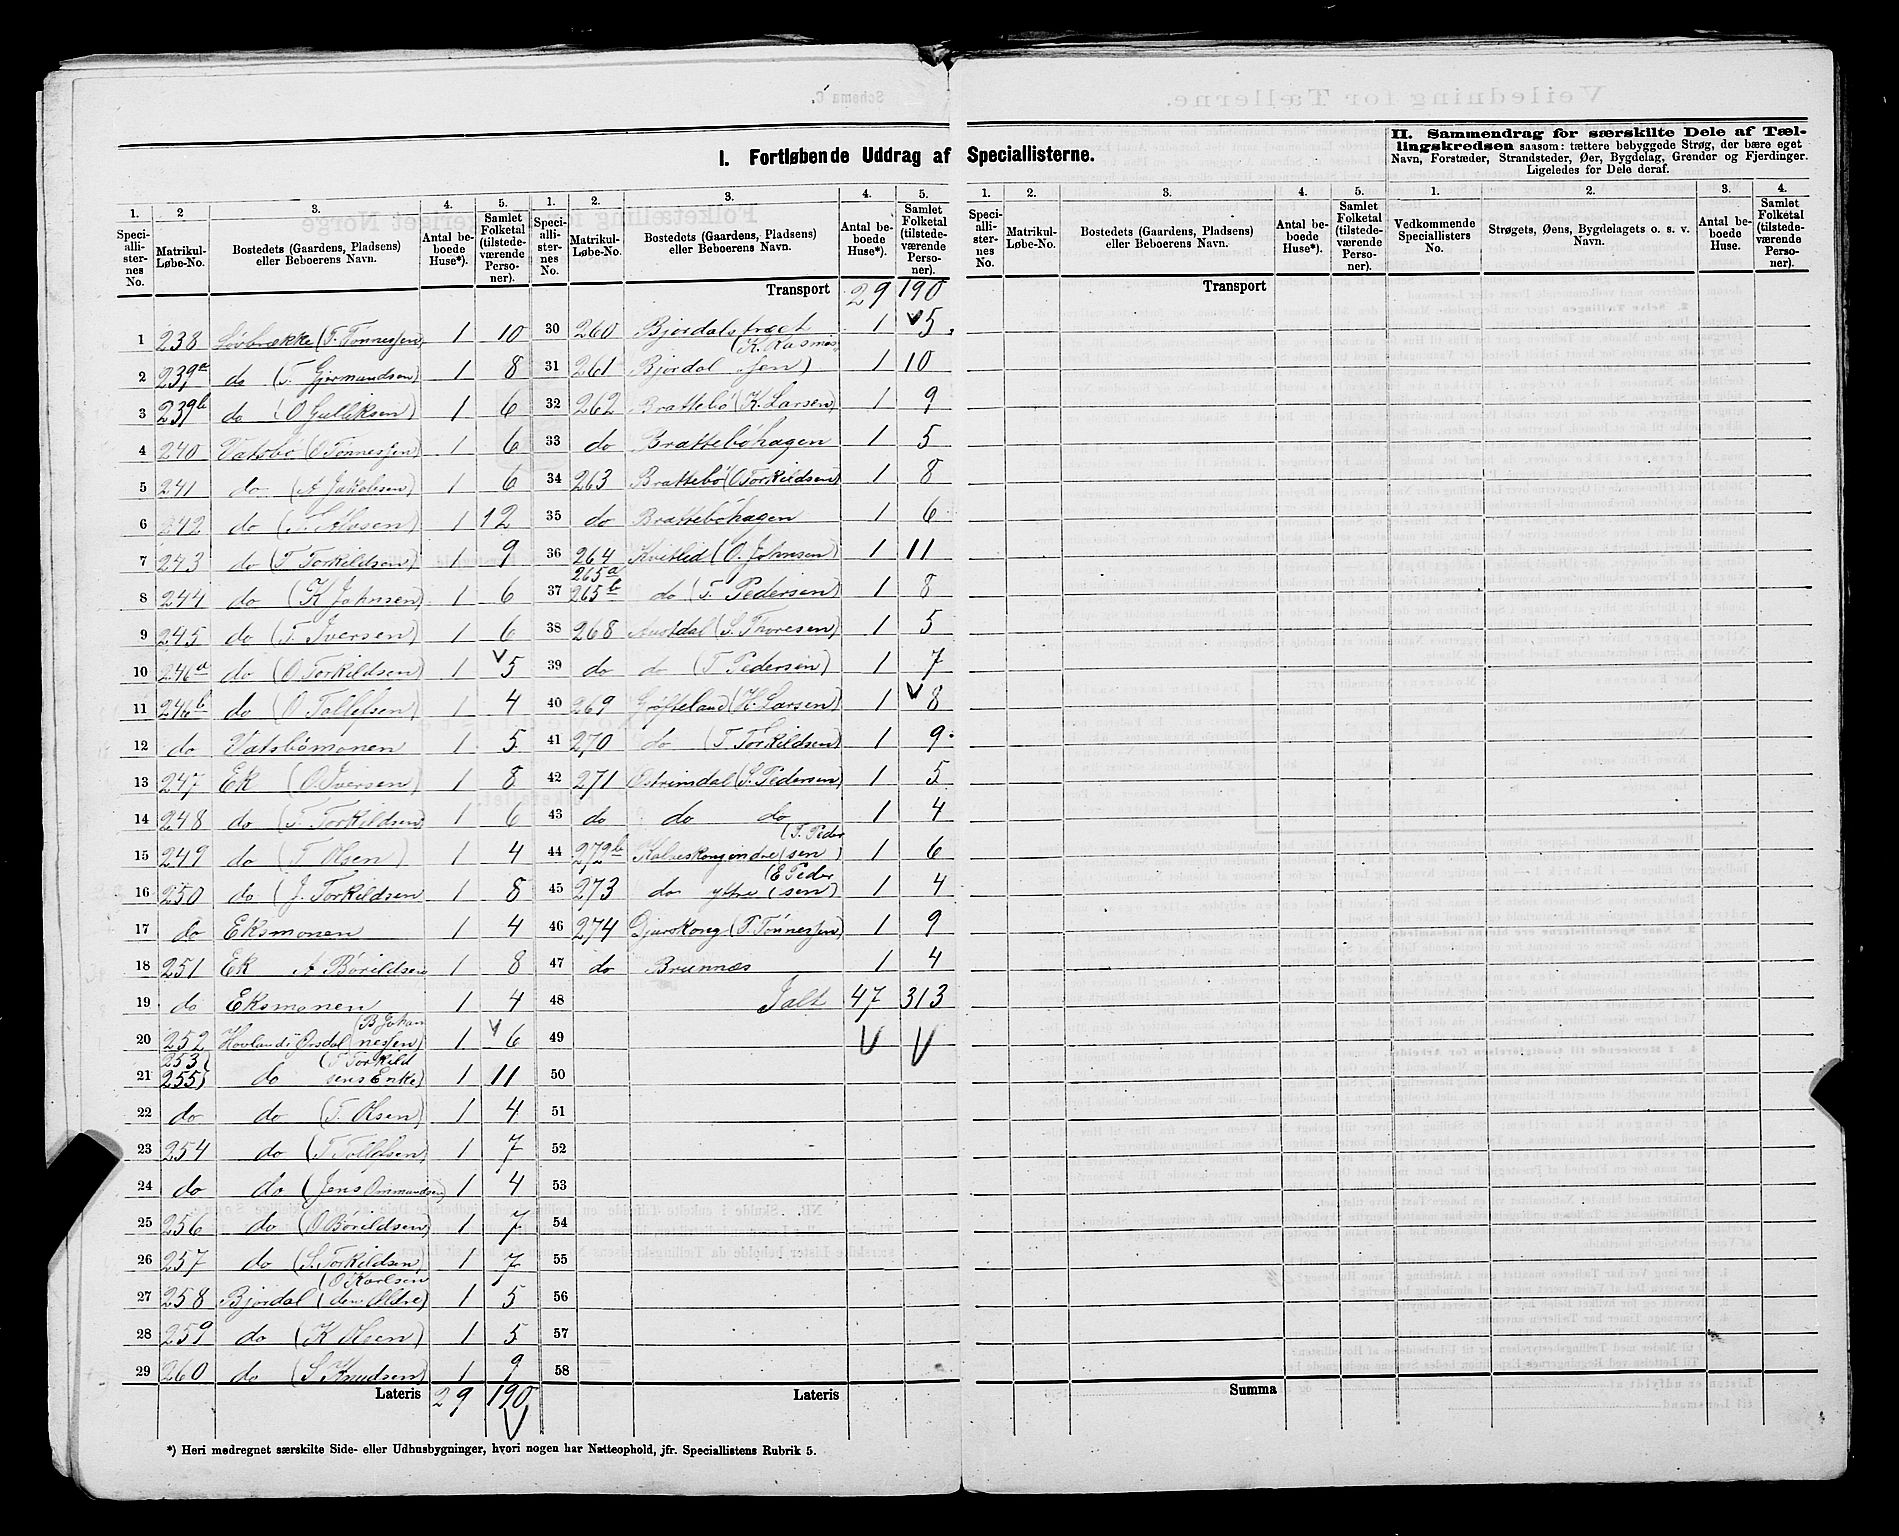 I. Fortløbende Uddrag af Speciallisterne.
II. Sammendrag for særskilte Dele af Tællingskredsen saasom: tættere bebyggede Strøg, der bære eget
Navn, Forstæder, Strandsteder, Øer, Bygdelag, Grender og Fjerdinger.
Ligeledes for Dele deraf.
1. 2 3. 4. 5. 1. 2. 3. 4. 5. 1. 2. 3. 4. 5. 1. 2. 3. 4.
Speciallisternes No. Matrikul-Løbe-No. Bostedets (Gaardens, Pladsens) eller Beboerens Navn. Antal beboede Huse*). Samlet Folketal (tilstedeværende Personer).
Speciallisternes No. Matrikul-Løbe-No. Bostedets (Gaardens, Pladsens) eller Beboerens Navn. Antal beboede Huse*). Samlet Folketal (tilstedeværende Personer).
Speciallisternes No. Matrikul-Løbe-No. Bostedets (Gaardens, Pladsens) eller Beboerens Navn. Antal beboede Huse*). Samlet Folketal (tilstedeværende Personer).
Vedkommende Speciallisters No. Strøgets, Øens, Bygdelagets o. s. v. Navn. Antal beboede Huse. Samlet Folketal (tilstedeværende Personer).
1 238 Løvbrække (T. Tønnessen) 1 10
2 239a do (T. Gjermundsen) 1 8
3 239b do (O Gulliksen) 1 6
4 240 Vatsbø (O Tønnessen) 1 6
5 241 do (A Jakobsen) 1 6
6 242 do 1 12
7 243 do (T Torkildsen) 1 9
8 244 do (K Johnsen) 1 6
9 245 do (T. Iversen) 1 6
10 246a do (O Torkildsen) 1 5
11 246b do (O Tollefsen) 1 4
12 do Vatsbømonen 1 5
13 247 Ek (O Iversen) 1 8
14 248 do (T. Torkildsen) 1 6
15 249 do (T Olsen) 1 4
16 250 do (J. Torkildsen 1 8
17 do Eksmonen 1 4
18 251 Ek A Bórildsen 1 8
19 do Eksmonen 1 4
20 252 Hovland i Ørsdal (B Johannessen) 1 6
21 253 255 do (T Torkildsens Enke) 1 11
22 do do (T. Olsen) 1 4
23 254 do (T Tollefsen) 1 7
24 do do (Jens Ommundsen) 1 4
25 256 do (O Borildsen) 1 7
26 257 do (S. Torkildsen) 1 7
27 258 Bjordal (O Karlsen den Ældre) 1 5
28 259 do (K Olsen) 1 5
29 260 do (S Knudsen) 1 9
Lateris 29 190
Transport 29 190
30 260 Bjordalstræet 1 5
31 261 Bjordal (K. Rasmussen) 1 10
32 262 Brattebø (K. Larsen) 1 9
33 do Brattebøhagen 1 5
34 263 Brattebø (O Torkildsen) 1 8
35 do Brattebøhagen 1 6
36 264 Kvitlid (O. Johnsen) 1 11
37 265a 265b do (T. Pedersen) 1 8
38 268 Austdal (S. Thoresen) 1 5
39 do do (T Pedersen) 1 7
40 269 Grøfteland (H. Larsen) 1 8
41 270 do (T Torkildsen) 1 9
42 271 Østrimdal (S. Pedersen) 1 5
43 do do do 1 4
44 272b (T. Pedersen) 1 6
45 273 do ytre (E Pedersen) 1 4
46 274 Djurskong (T. Tønnessen) 1 9
47 do Brunnæs 1 4
48 Ialt 47 313
49
50
51
52
53
54
55
56
57
58
Lateris
Transport
Summa
*) Heri medregnet særskilte Side- eller Udhusbygninger, hvori nogen har Natteophold, jfr. Speciallistens Rubrik 5.